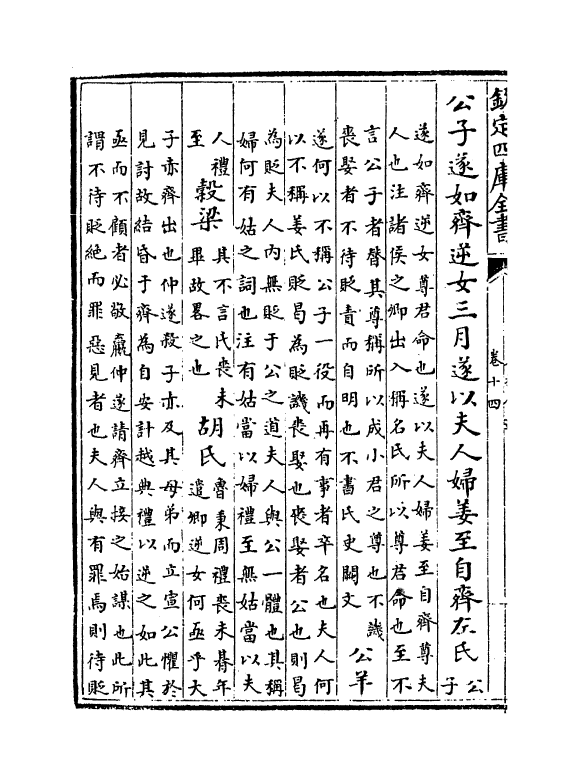 欽定四庫全書
卷十四
公子遂如齊逆女三月遂以夫人婦姜至自齊左氏
公
子
遂如齊逆女尊君命也遂以夫人婦姜至自齊尊夫
人也注諸侯之卿出入稱名氏所以尊君命也至不
言公子者替其尊稱所以成小君之尊也不譏
喪娶者不待貶責而自明也不書氏史闕文
公羊
遂何以不稱公子一役而再有事者卒名也夫人何
以不稱姜氏貶曷為貶譏喪娶也喪娶者公也則曷
為貶夫人内無貶于公之道夫人與公一體也其稱
婦何有姑之詞也注有姑當以婦禮至無姑當以夫
人禮
至
穀梁
其不言氏喪未
畢故畧之也
胡氏
魯秉周禮喪未朞年
遣卿逆女何亟乎大
子赤齊出也仲遂殺子赤及其母弟而立宣公懼於
見討故結昏于齊為自安計越典禮以逆之如此其
亟而不顧者必敬嬴仲遂請齊立接之始謀也此所
謂不待貶絶而罪惡見者也夫人與有罪焉則待貶